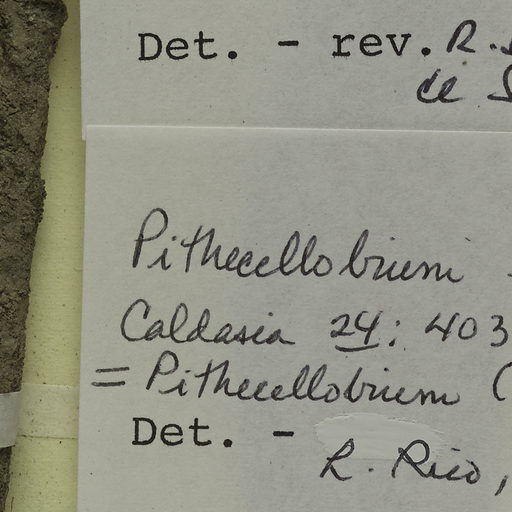 Det. - rev. R.
de S
Pithecellobium
Caldasia 24: 403
= Pithecellobium (
Det. -
R. Rico,